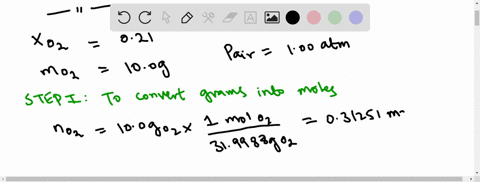 — " —
X O2 = 0.21
Pair = 1.00 atm
mO2 = 10.0g
STEP I: To convert grams into moles
nO2 = 10.0g O2 × 1 mol O2 / 31.9988g O2 = 0.31251 m